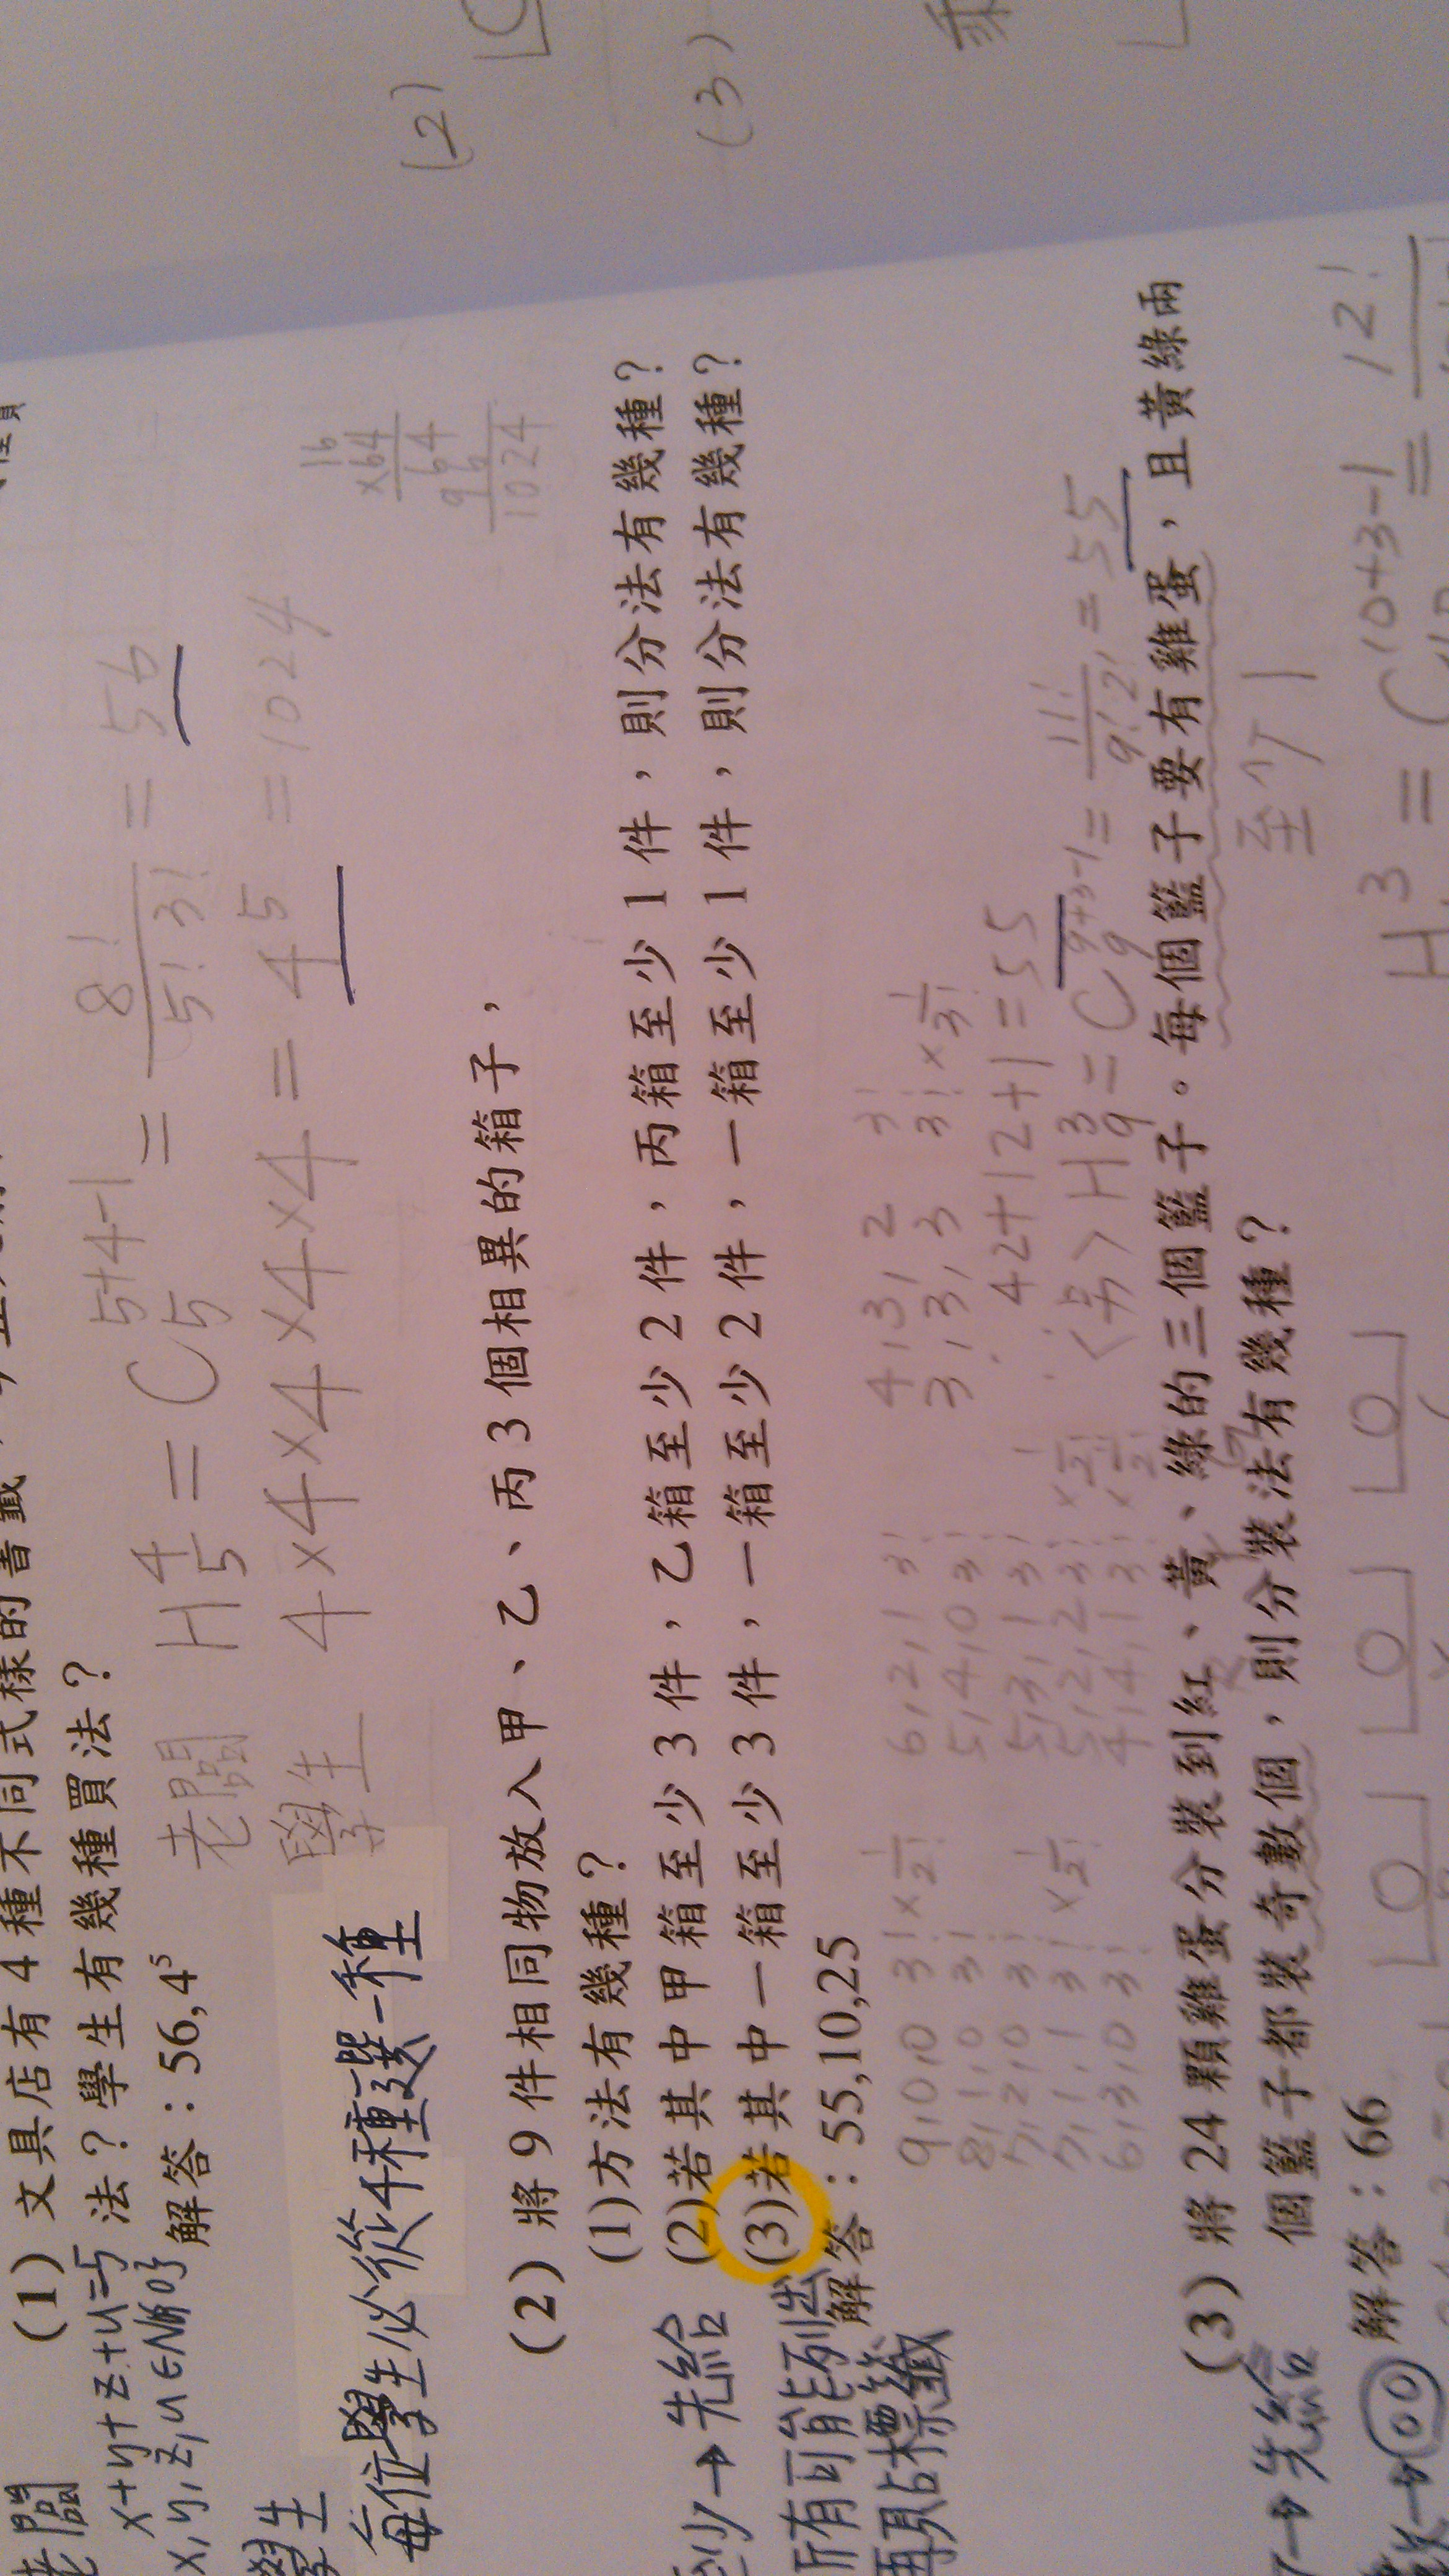 (1) 文具店有 4 種不同式樣的書籤
法？學生有幾種買法？
解答：56,4⁵
老闆
x+y+z+u=5
x,y,z,u∈N或0
學生
老闆 H⁴₅ = C⁵⁺⁴⁻¹₅ = 8!/5!3! = 56
學生 4×4×4×4×4 = 4⁵ = 1024
16
×64
64
96
1024
每位學生必從4種選一種
(2) 將 9 件相同物放入甲、乙、丙 3 個相異的箱子，
(1)方法有幾種？
(2)若其中甲箱至少 3 件，乙箱至少 2 件，丙箱至少 1 件，則分法有幾種？
(3)若其中一箱至少 3 件，一箱至少 2 件，一箱至少 1 件，則分法有幾種？
解答：55,10,25
至少→先給
所有可能列出
再貼標籤
9,0,0 3!×1/2!
8,1,0 3!
7,2,0 3!
7,1,1 3!×1/2!
6,3,0 3!
6,2,1 3!
5,4,0 3!
5,3,1 3!
5,2,2 3!×1/2!
4,4,1 3!×1/2!
4,3,2 3!
3,3,3 3!×1/3!
42+12+1=55
<另> H³₉ = C⁹⁺³⁻¹₉ = 11!/9!2! = 55
(3) 將 24 顆雞蛋分裝到紅、黃、綠的三個籃子。每個籃子要有雞蛋，且黃綠兩
個籃子都裝奇數個，則分裝法有幾種？
至少1
解答：66
→先給
H³ = C¹⁰⁺³⁻¹ = 12!
(2)
(3)